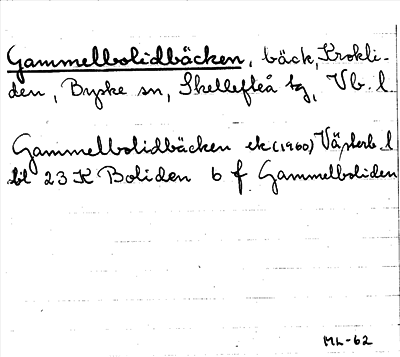 Gammelbolidbäcken, bäck, Krokli-
den, Byske sn, Skellefteå tg, Vb. l.
Gammelbolidbäcken ek (1960) Västerb. l
bl 23 K Boliden 6 f Gammelboliden
ML-62